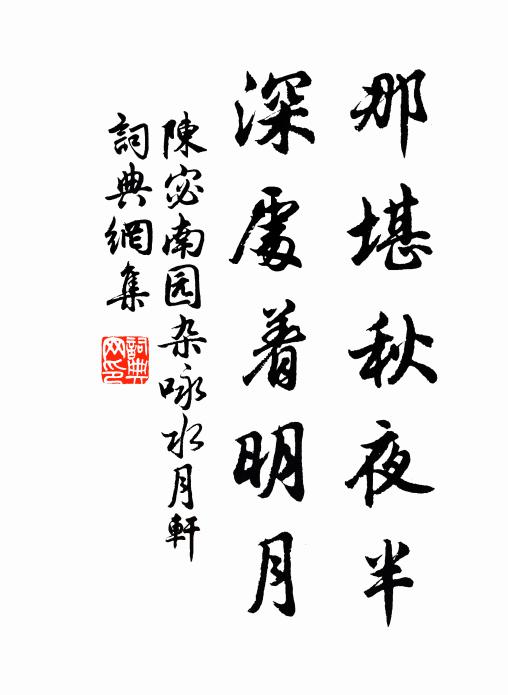 那堪秋夜半
深處着明月
陳宓南园杂咏水月軒
詞典網集
詞典網印